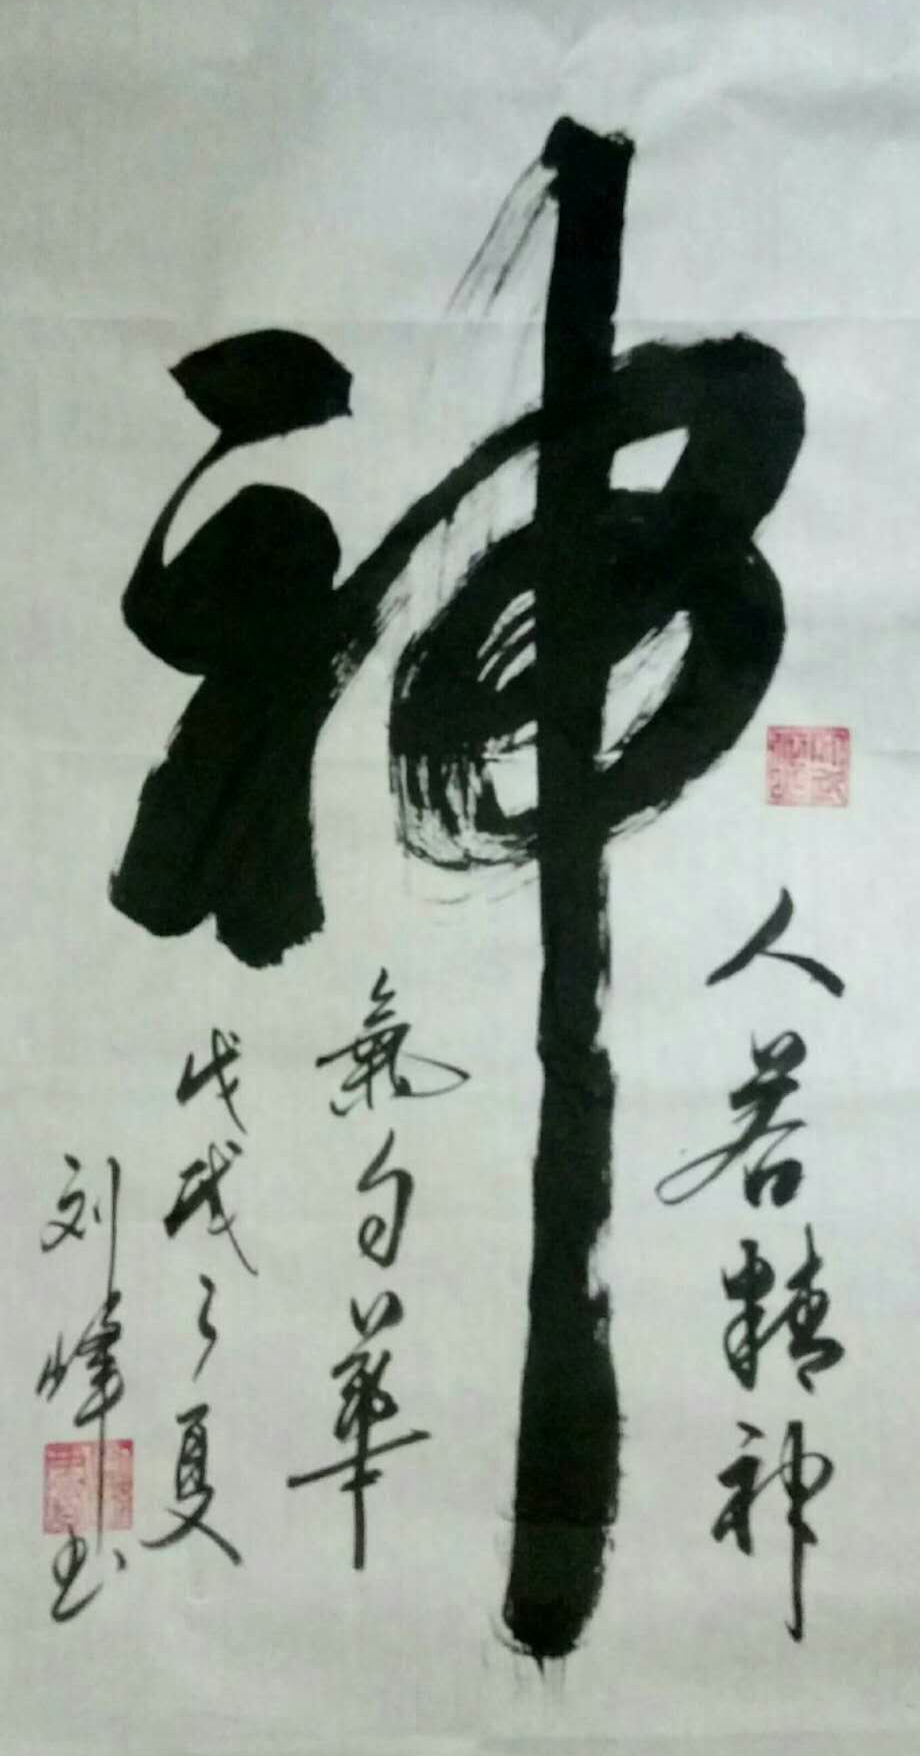 神
人若精神
氣自華
戊戌之夏
刘峰书